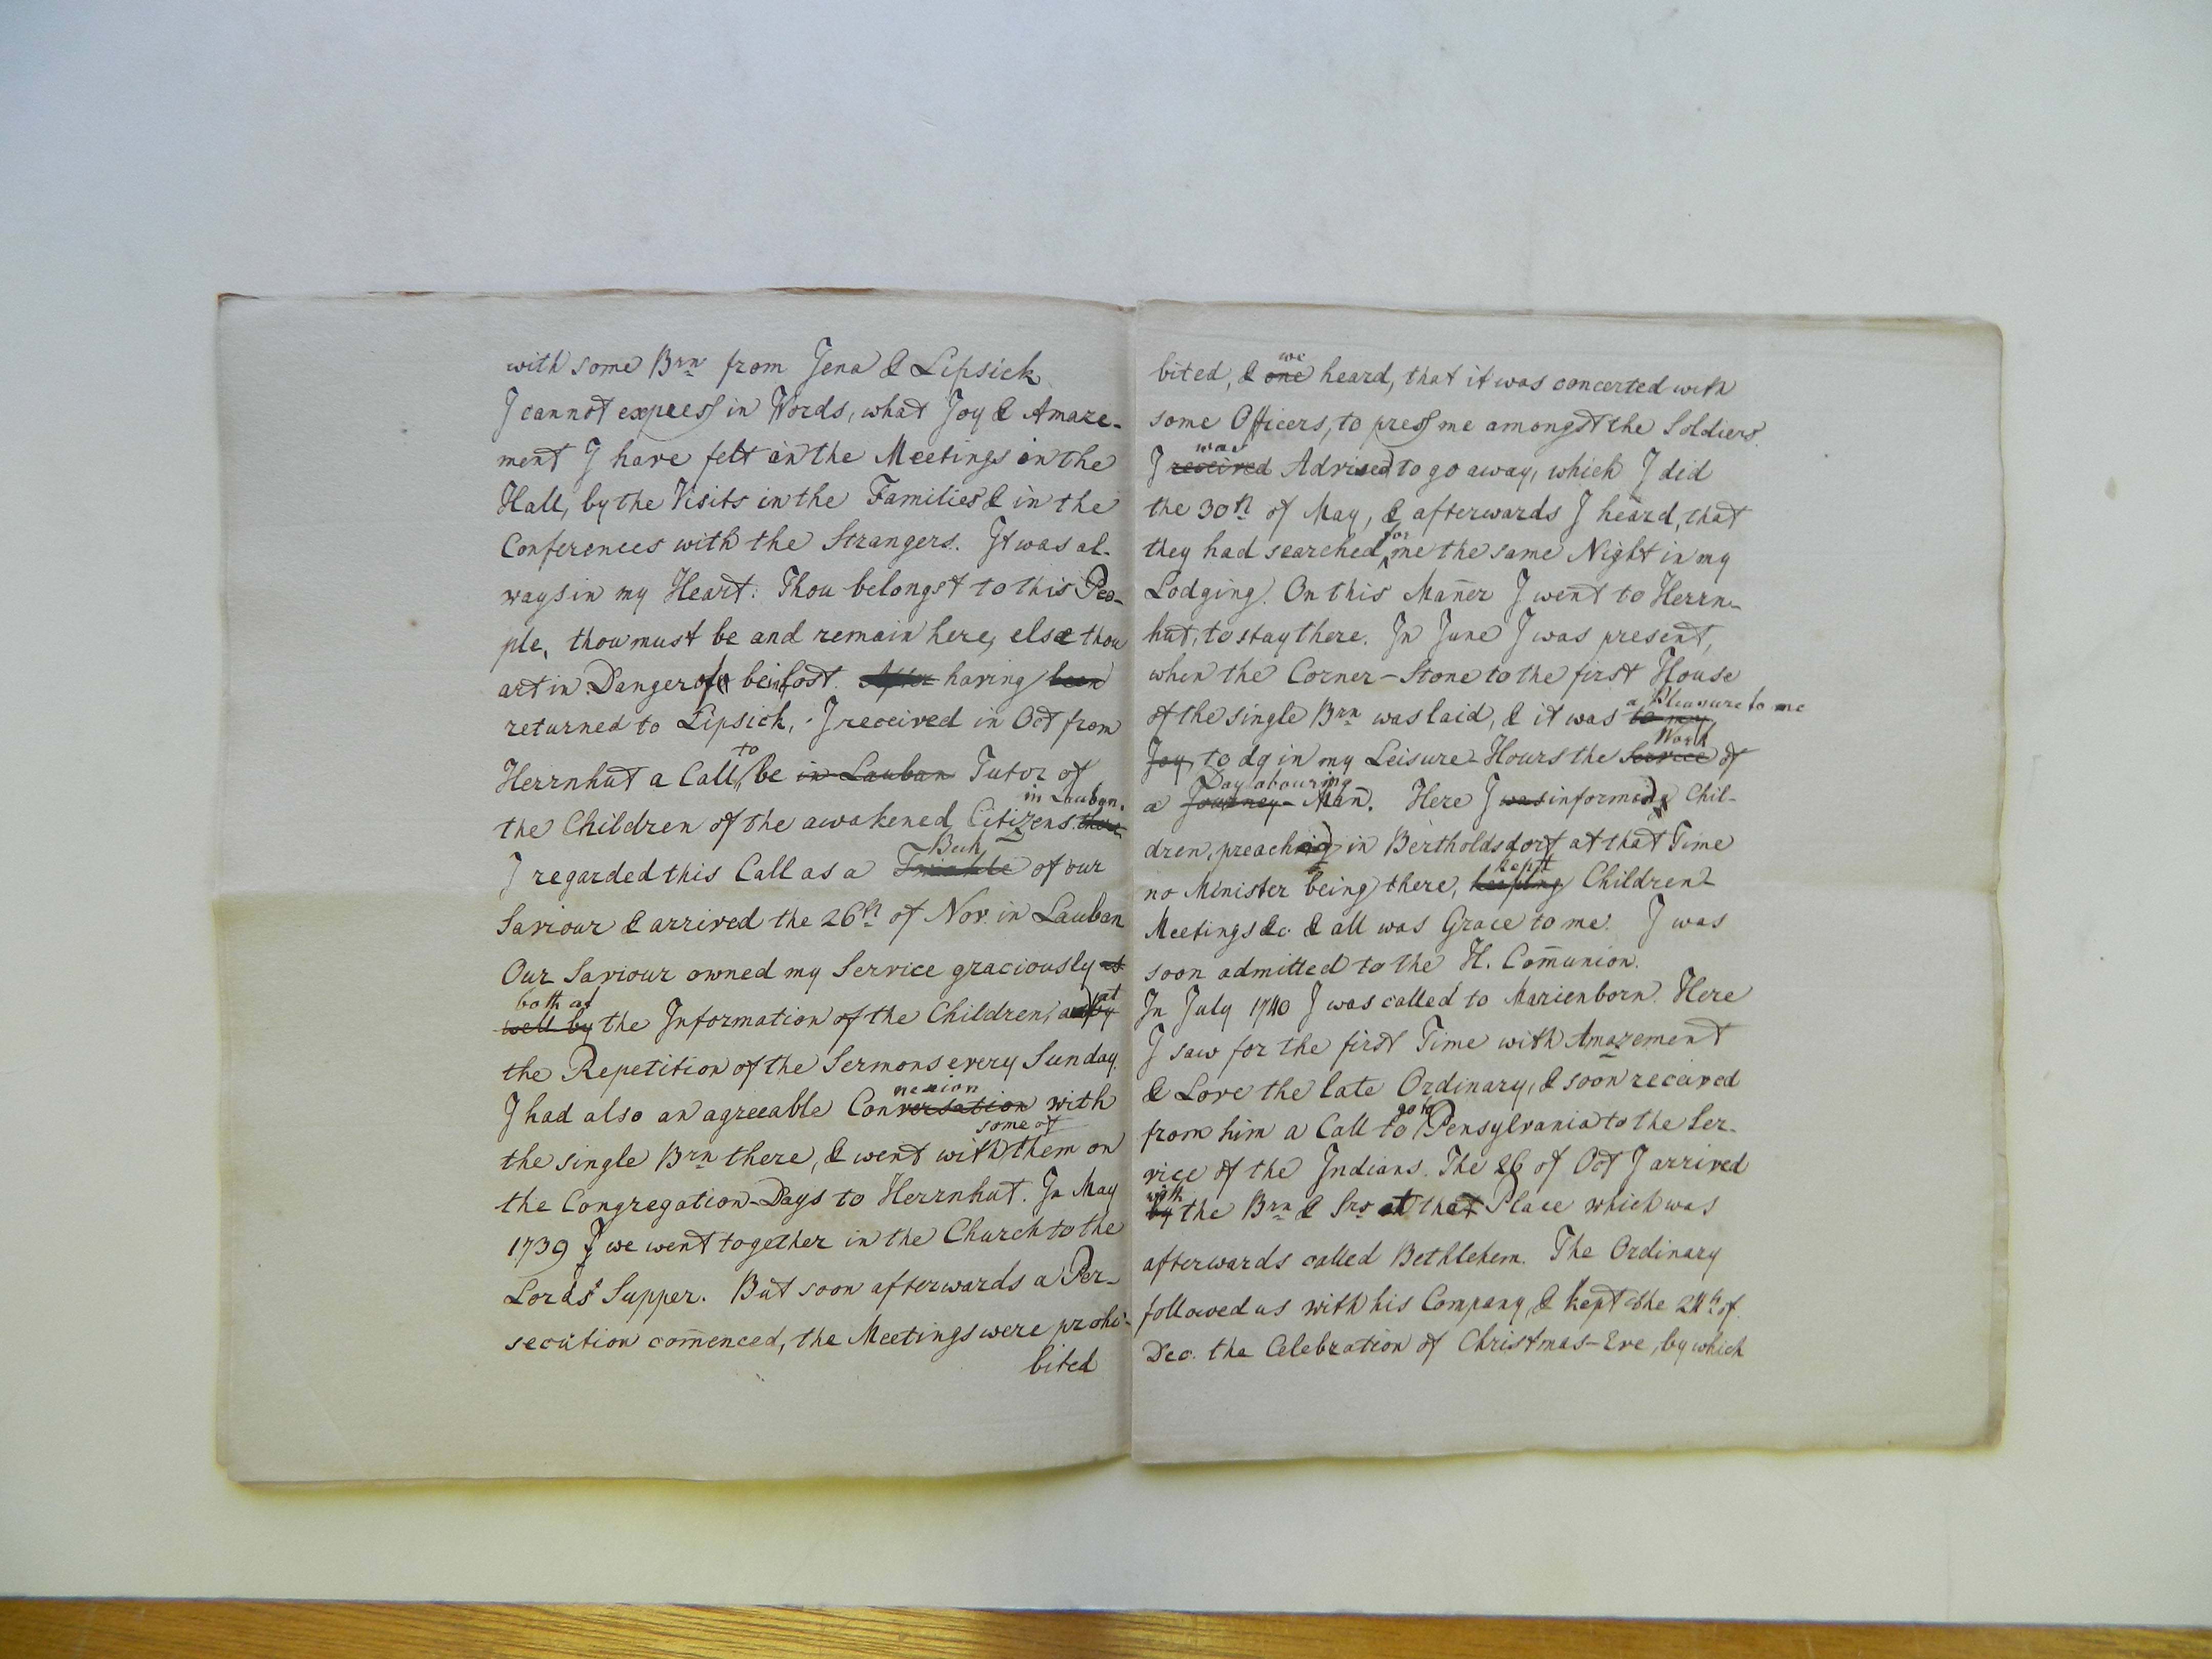 with some Brn from Jena & Lipsick
I cannot express in Words, what Joy & Amaze-
ment I have felt in the Meetings in the
Hall, by the Visits in the Families & in the
Conferences with the Strangers. It was al-
ways in my Heart: Thou belongst to this Peo-
ple, thou must be and remain here, else thou
art in Danger of being lost. After having been
returned to Lipsick, I received in Oct from
Herrnhut a Call to be in Lauban Tutor of
in Lauban.
the Children of the awakened Citizens there
Beck
I regarded this Call as a of our
Saviour & arrived the 26th of Nov. in Lauban
Our Saviour owned my Service graciously as
both at at
well by the Information of the Children, as by
the Repetition of the Sermons every Sunday.
nexion
I had also an agreeable Conversation with
some of
the single Brn there, & went with them on
the Congregation-Days to Herrnhut. In May
1739 I we went together in the Church to the
Lords Supper. But soon afterwards a Per-
secution com̄enced, the Meetings were prohi-
bited
we
bited, & one heard, that it was concerted with
some Officers, to press me amongst the Soldiers.
was
I received Advised to go away, which I did
the 30th of May, & afterwards I heard, that
for
they had searched me the same Night in my
Lodging. On this Man̄er I went to Herrn-
hut, to stay there. In June I was present,
when the Corner-Stone to the first House
a Pleasure to me
of the single Brn was laid, & it was to my
Work
Joy, to do in my Leisure-Hours the Service of
Daylabouring
a Journey-Man. Here I was informed Chil-
dren, preaching in Bertholdsdorf at that Time
kept
no Minister being there, keeping Children-
Meetings &c. & all was Grace to me. I was
soon admitted to the H. Com̄union.
In July 1740 I was called to Marienborn. Here
I saw for the first Time with Amazement
& Love the late Ordinary, & soon received
go to
from him a Call to Pensylvania to the Ser-
vice of the Indians. The 26 of Oct I arrived
with
by the Brn & Srs at that Place which was
afterwards called Bethlehem. The Ordinary
followed us with his Company, & kept the 24th of
Dec. the Celebration of Christmas-Eve, by which